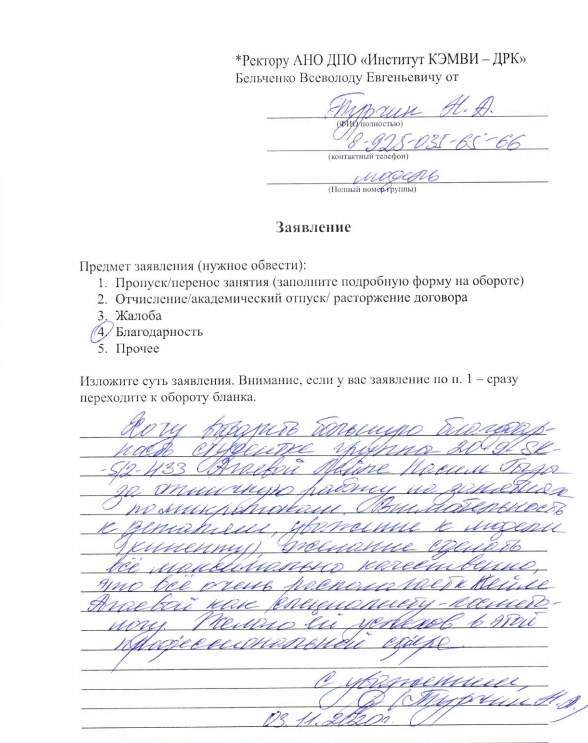 *Ректору АНО ДПО «Институт КЭМВИ – ДРК»
Бельченко Всеволоду Евгеньевичу от
Турчин Н. А.
(ФИО полностью)
8-925-035-65-66
(контактный телефон)
модель
(Полный номер группы)
Заявление
Предмет заявления (нужное обвести):
1. Пропуск/перенос занятия (заполните подробную форму на обороте)
2. Отчисление/академический отпуск/ расторжение договора
3. Жалоба
4. Благодарность
5. Прочее
Изложите суть заявления. Внимание, если у вас заявление по п. 1 – сразу
переходите к обороту бланка.
Хочу большую благодар-
ность студентке группы
Агаевой
за отличную работу на занятиях
по Внимательность
к деталям, уважение к модели
(клиенту), желание сделать
всё максимально качественно,
это всё очень располагает к
Агаевой как специалисту-космето-
логу. Желаю ей успехов в этой
профессиональной сфере.
с уважением,
Турчин Н. А.
03.11.2020г.